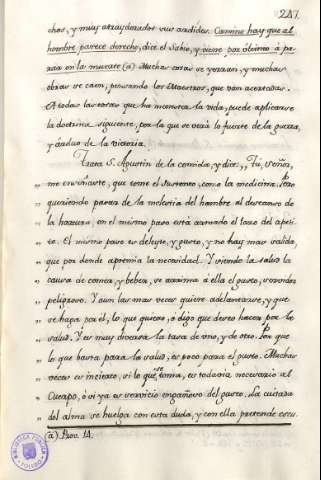 247.
chos, y muy atraydorados sus ardides. Camino hay que al
hombre parece derecho, dice el Sabio, y viene por último á pa-
rar en la muerte (a) Muchas cosas se yerran, y muchas
obras se caen, pensando los Maestros, que van acertadas.
A todas las cosas que ha menester la vida, puede aplicarse
la doctrina siguiente, por la que se verá lo fuerte de la guerra,
y arduo de la victoria.
Trata S. Agustin de la comida, y dice: „Tú, Señor,
„ me enseñaste, que tome el sustento, como la medicina. Pero
„ queriendo pasar de la molestia del hambre al descanso de
„ la hartura, en el mismo paso está armado el lazo del apeti-
„ to. El mismo paso es deleyte, y gusto, y no hay mas salida,
„ que por donde apremia la necesidad. Y siendo la salud la
„ causa de comer, y beber, se arrima á ella el gusto, servidor
„ peligroso. Y aun las mas veces quiere adelantarse, y que
„ se haga por el, lo que quiero, ó digo que deseo hacer por la
„ salud. Y es muy diversa la tasa de uno, y de otro. Por que
„ lo que basta para la salud, es poco para el gusto. Muchas
„ veces es incierto, si lo que se toma, es todavia necesario al
„ Cuerpo, ó si ya es servicio engañoso del gusto. La cuitada
„ del alma se huelga con esta duda, y con ella pretende escu-
(a) Prov. 14.
BIBLIOTECA PUBLICA
TOLEDO